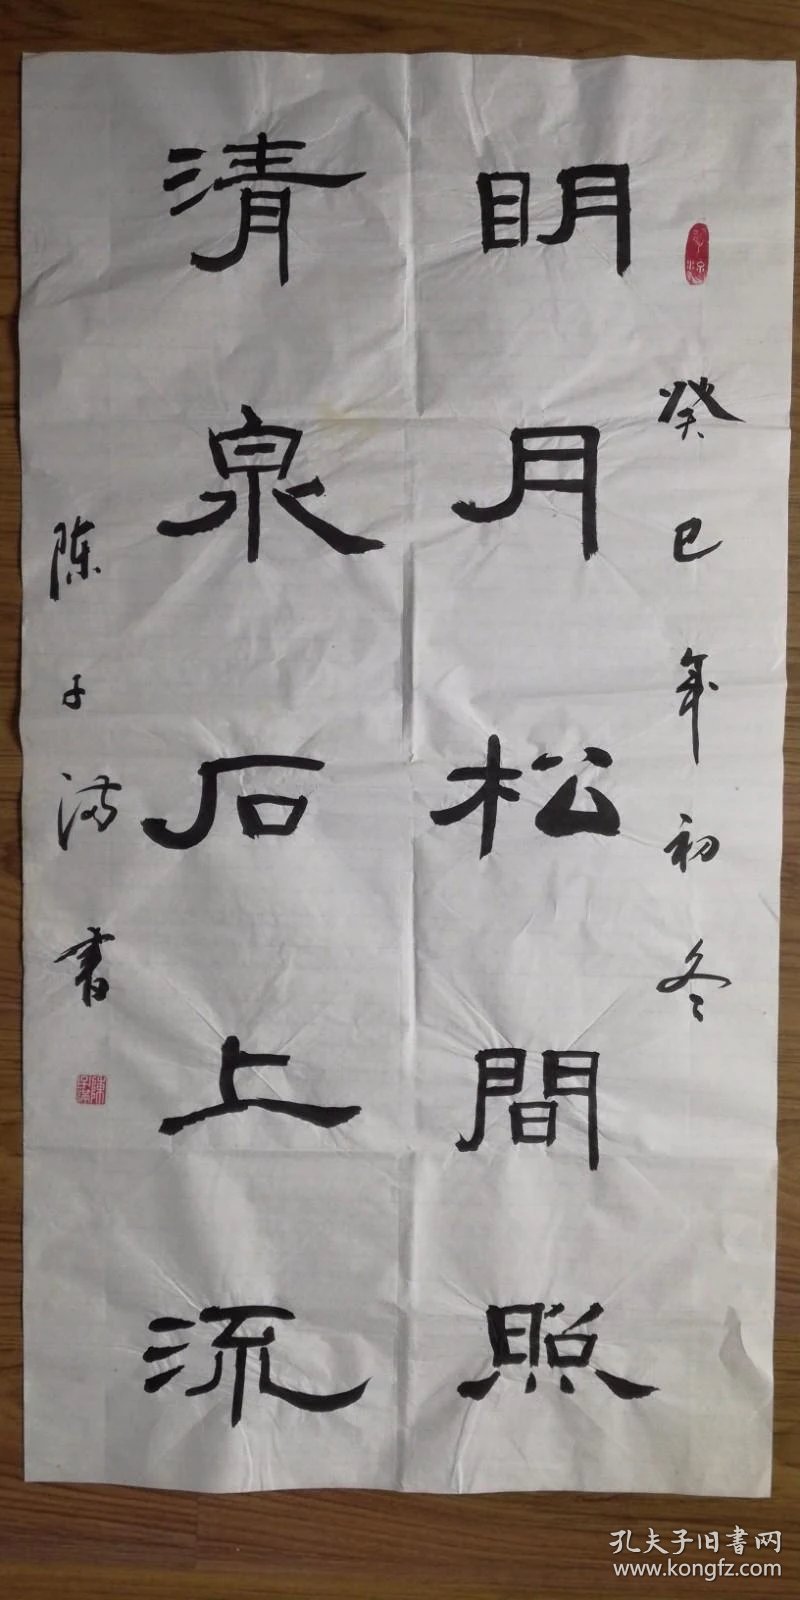 癸巳年初冬
明月松間照
清泉石上流
陈子满书
孔夫子旧书网
www.kongfz.com